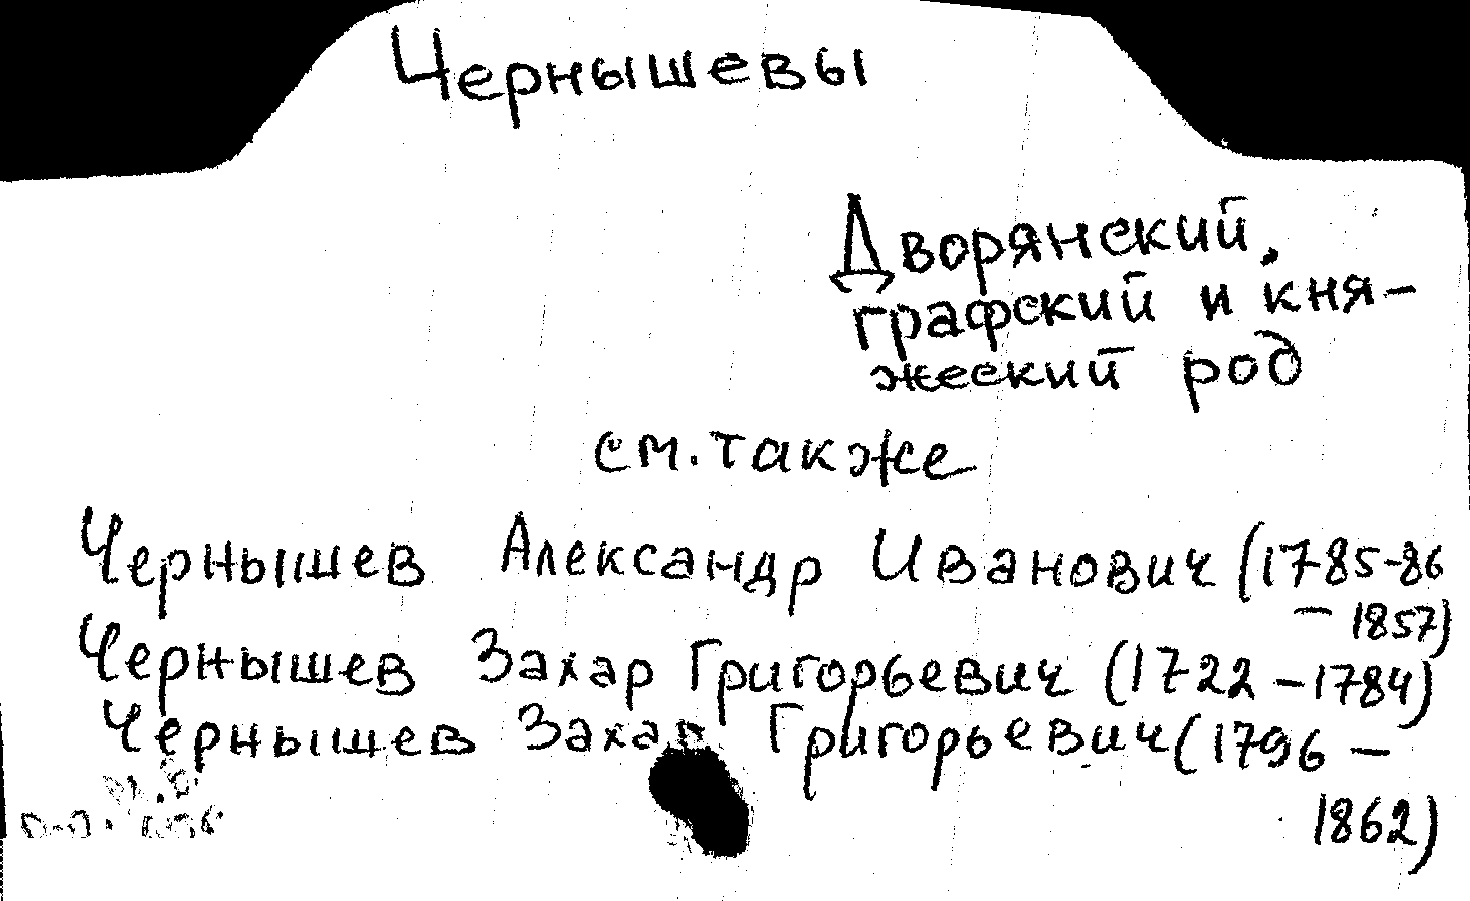 Чернышевы
Дворянский,
графский и кня-
жеский род
см. также
Чернышев Александр Иванович (1785-86
- 1857)
Чернышев Захар Григорьевич (1722 - 1784)
Чернышев Захар Григорьевич (1796 -
1862)